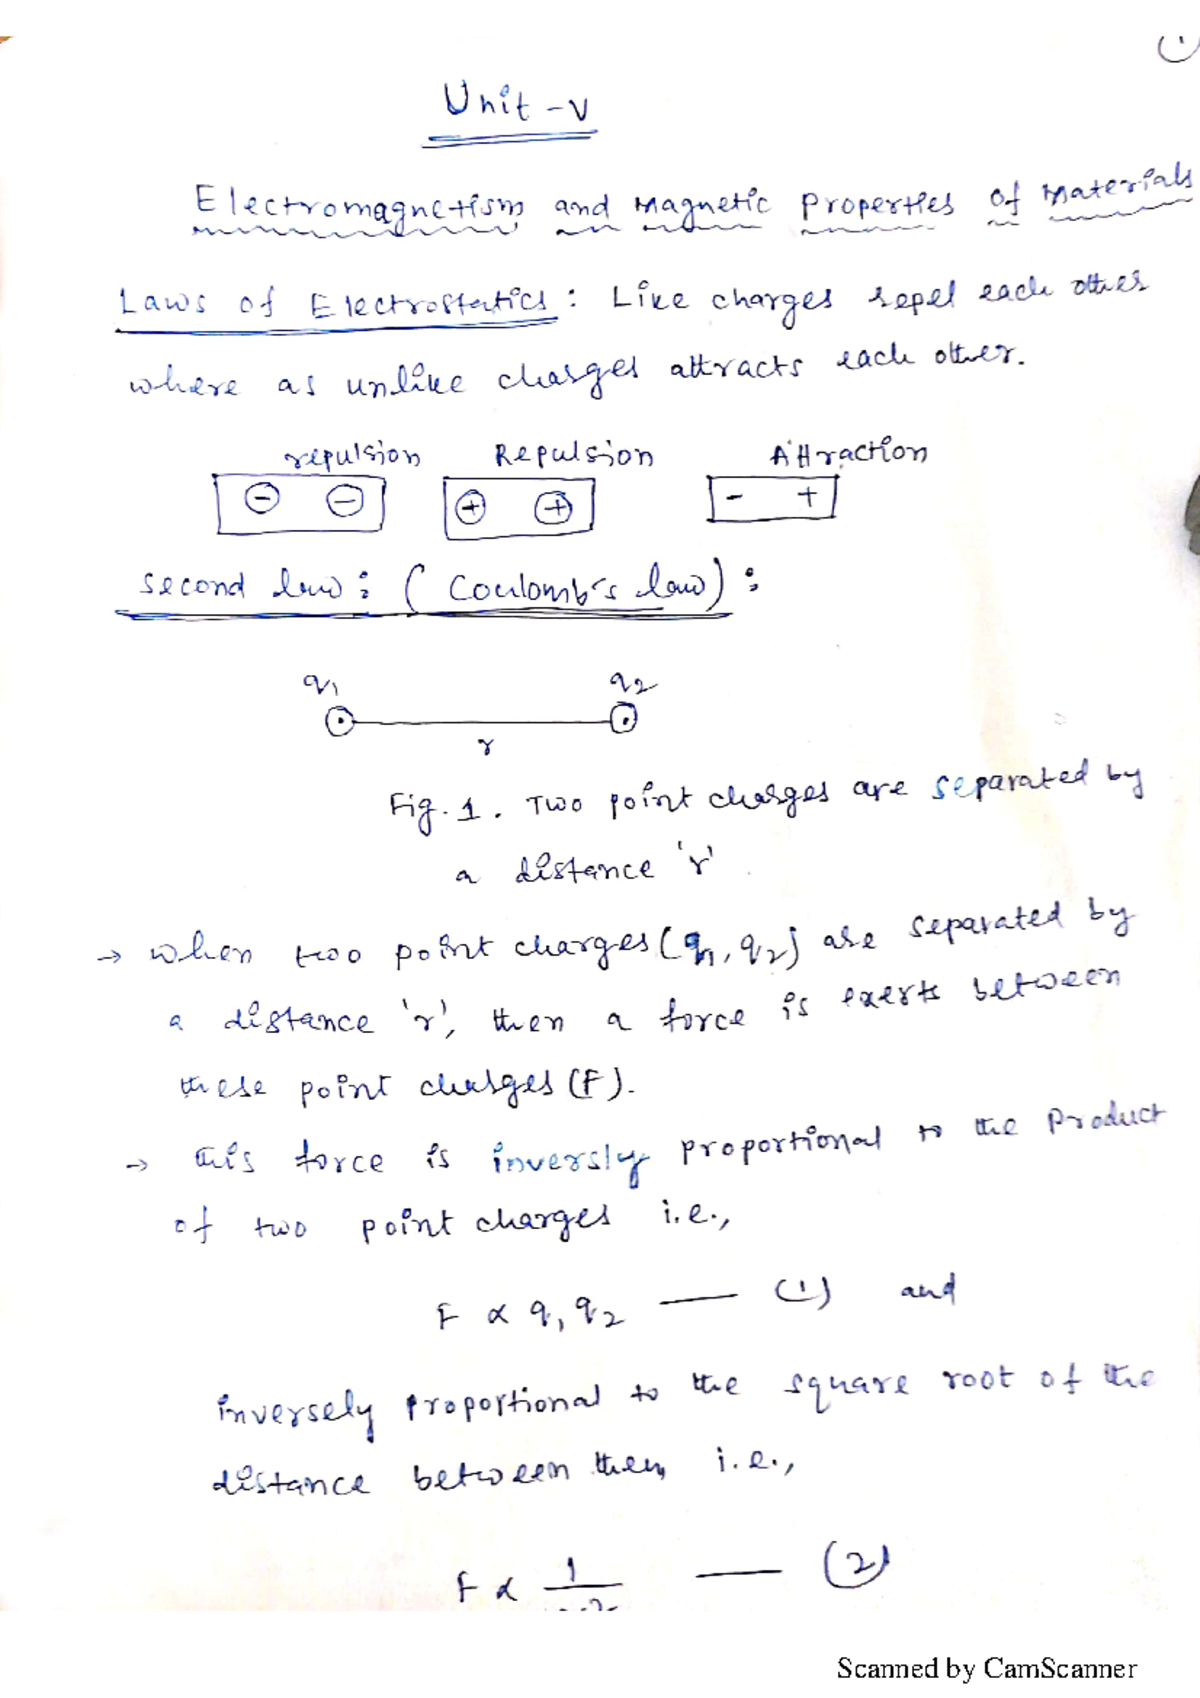 (1)
Unit-V
Electromagnetism and Magnetic Properties of Materials
Laws of Electrostatics : Like charges repel each other
where as unlike charges attracts each other.
repulsion Repulsion Attraction
- - + + - +
Second law : ( Coulomb's law) :
q1 q2
r
Fig. 1. Two point charges are separated by
a distance 'r'
→ when two point charges (q1, q2) are separated by
a distance 'r', then a force is exerts between
these point charges (F).
→ this force is inversly proportional to the product
of two point charges i.e.,
F ∝ q1 q2 — (1) and
inversely proportional to the square root of the
distance between them i.e.,
F ∝ 1 — (2)
Scanned by CamScanner